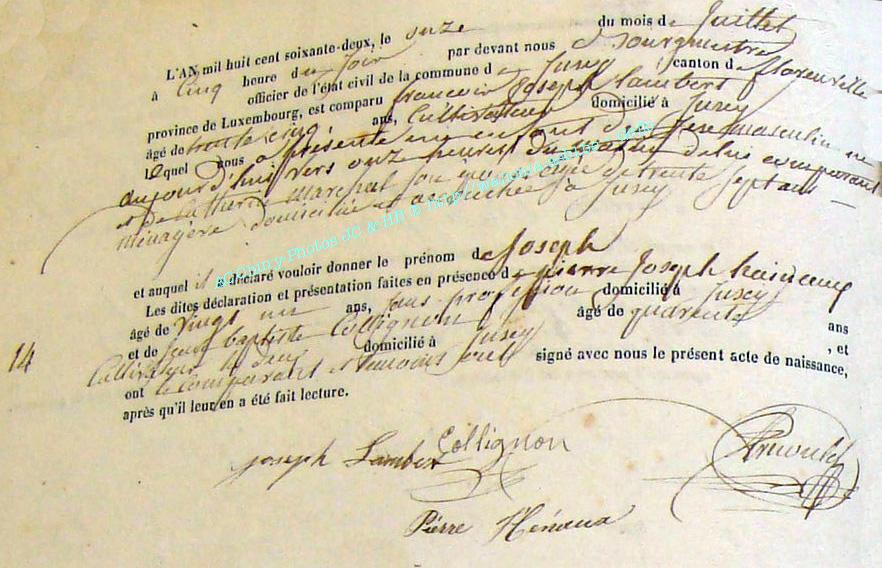 L'AN mil huit cent soixante-deux, le onze du mois de Juillet
à Cinq heure du soir par devant nous Bourgmestre
officier de l'état civil de la commune de Jusey canton de florenville
province de Luxembourg, est comparu francois Joseph Lambert
âgé de trente cinq ans, Cultivateur domicilié à Jusey
Lequel nous a présenté un enfant du sexe masculin né
aujourd'hui vers onze heures du matin de lui comparant
et de Catherine Marchal son épouse agée de trente sept ans
Ménagère domiciliée et accouchée à Jusey
et auquel il a déclaré vouloir donner le prénom de Joseph
Les dites déclaration et présentation faites en présence de pierre Joseph
âgé de vingt un ans, sans profession domicilié à Jusey
et de Jean baptiste Collignon âgé de quarante ans
14
Cultivateur domicilié à Jusey , et
ont le comparant et témoins ont signé avec nous le présent acte de naissance,
après qu'il leur en a été fait lecture.
Joseph Lambert Collignon
Pierre